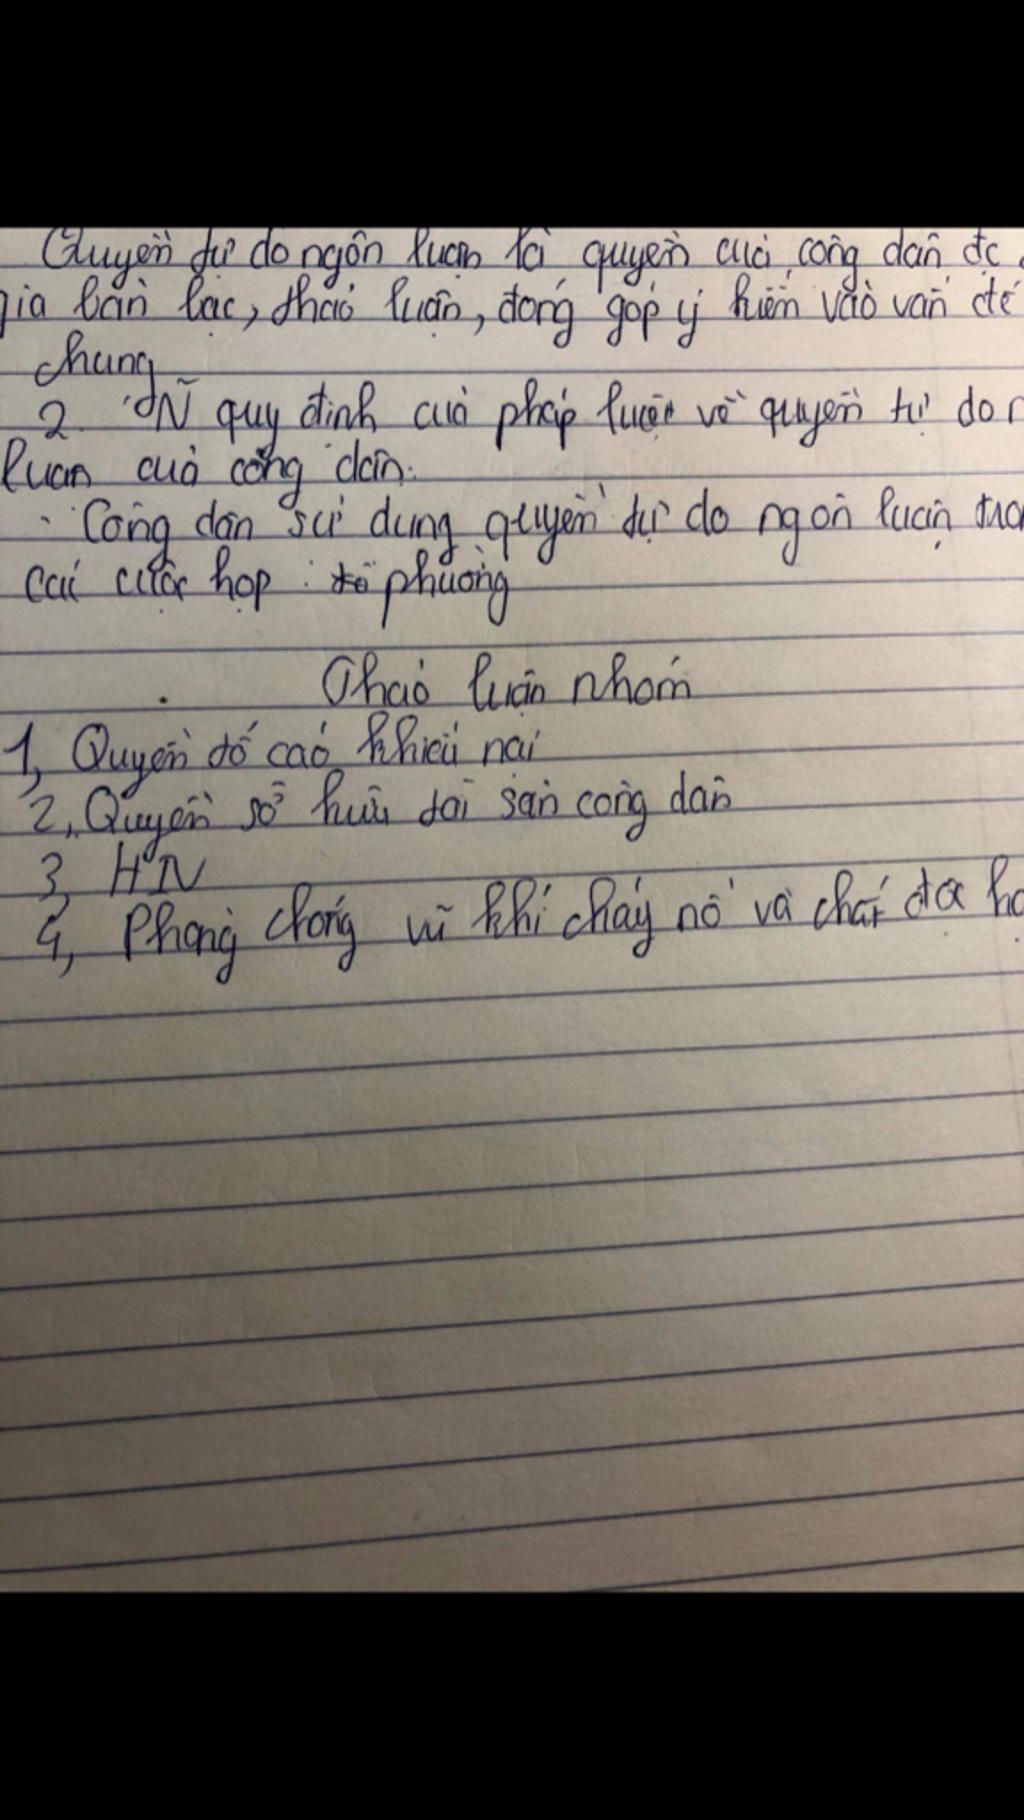 Quyền tự do ngôn luận là quyền của công dân đc
gia bàn bạc, thảo luận, đóng góp ý kiến vào vấn đề
chung
2. N~ quy định của pháp luật về quyền tự do n
luận của công dân.
- Công dân sử dụng quyền tự do ngôn luận tro
các cuộc họp phường
Thảo luận nhóm
1, Quyền tố cáo khiếu nại
2, Quyền sở hữu tài sản công dân
3, HN
4, Phòng chống vũ khí cháy nổ và chất độc hạ